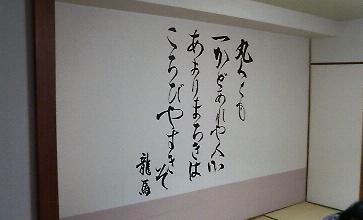 丸くとも
一かどあれや人心
あまりまろきは
ころびやすきぞ
龍馬